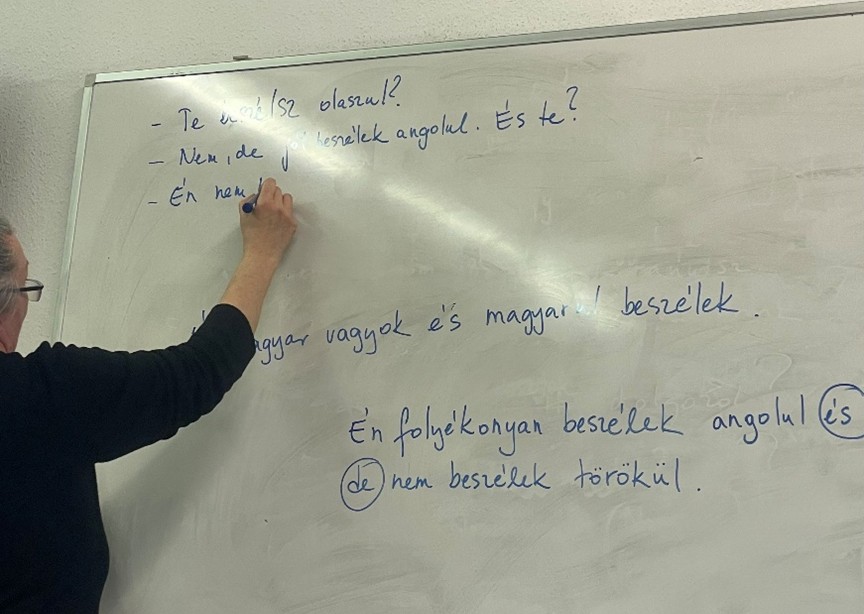 - Te beszélsz olaszul?
- Nem, de jól beszélek angolul. És te?
- Én nem
magyar vagyok és magyarul beszélek.
Én folyékonyan beszélek angolul és
de nem beszélek törökül.